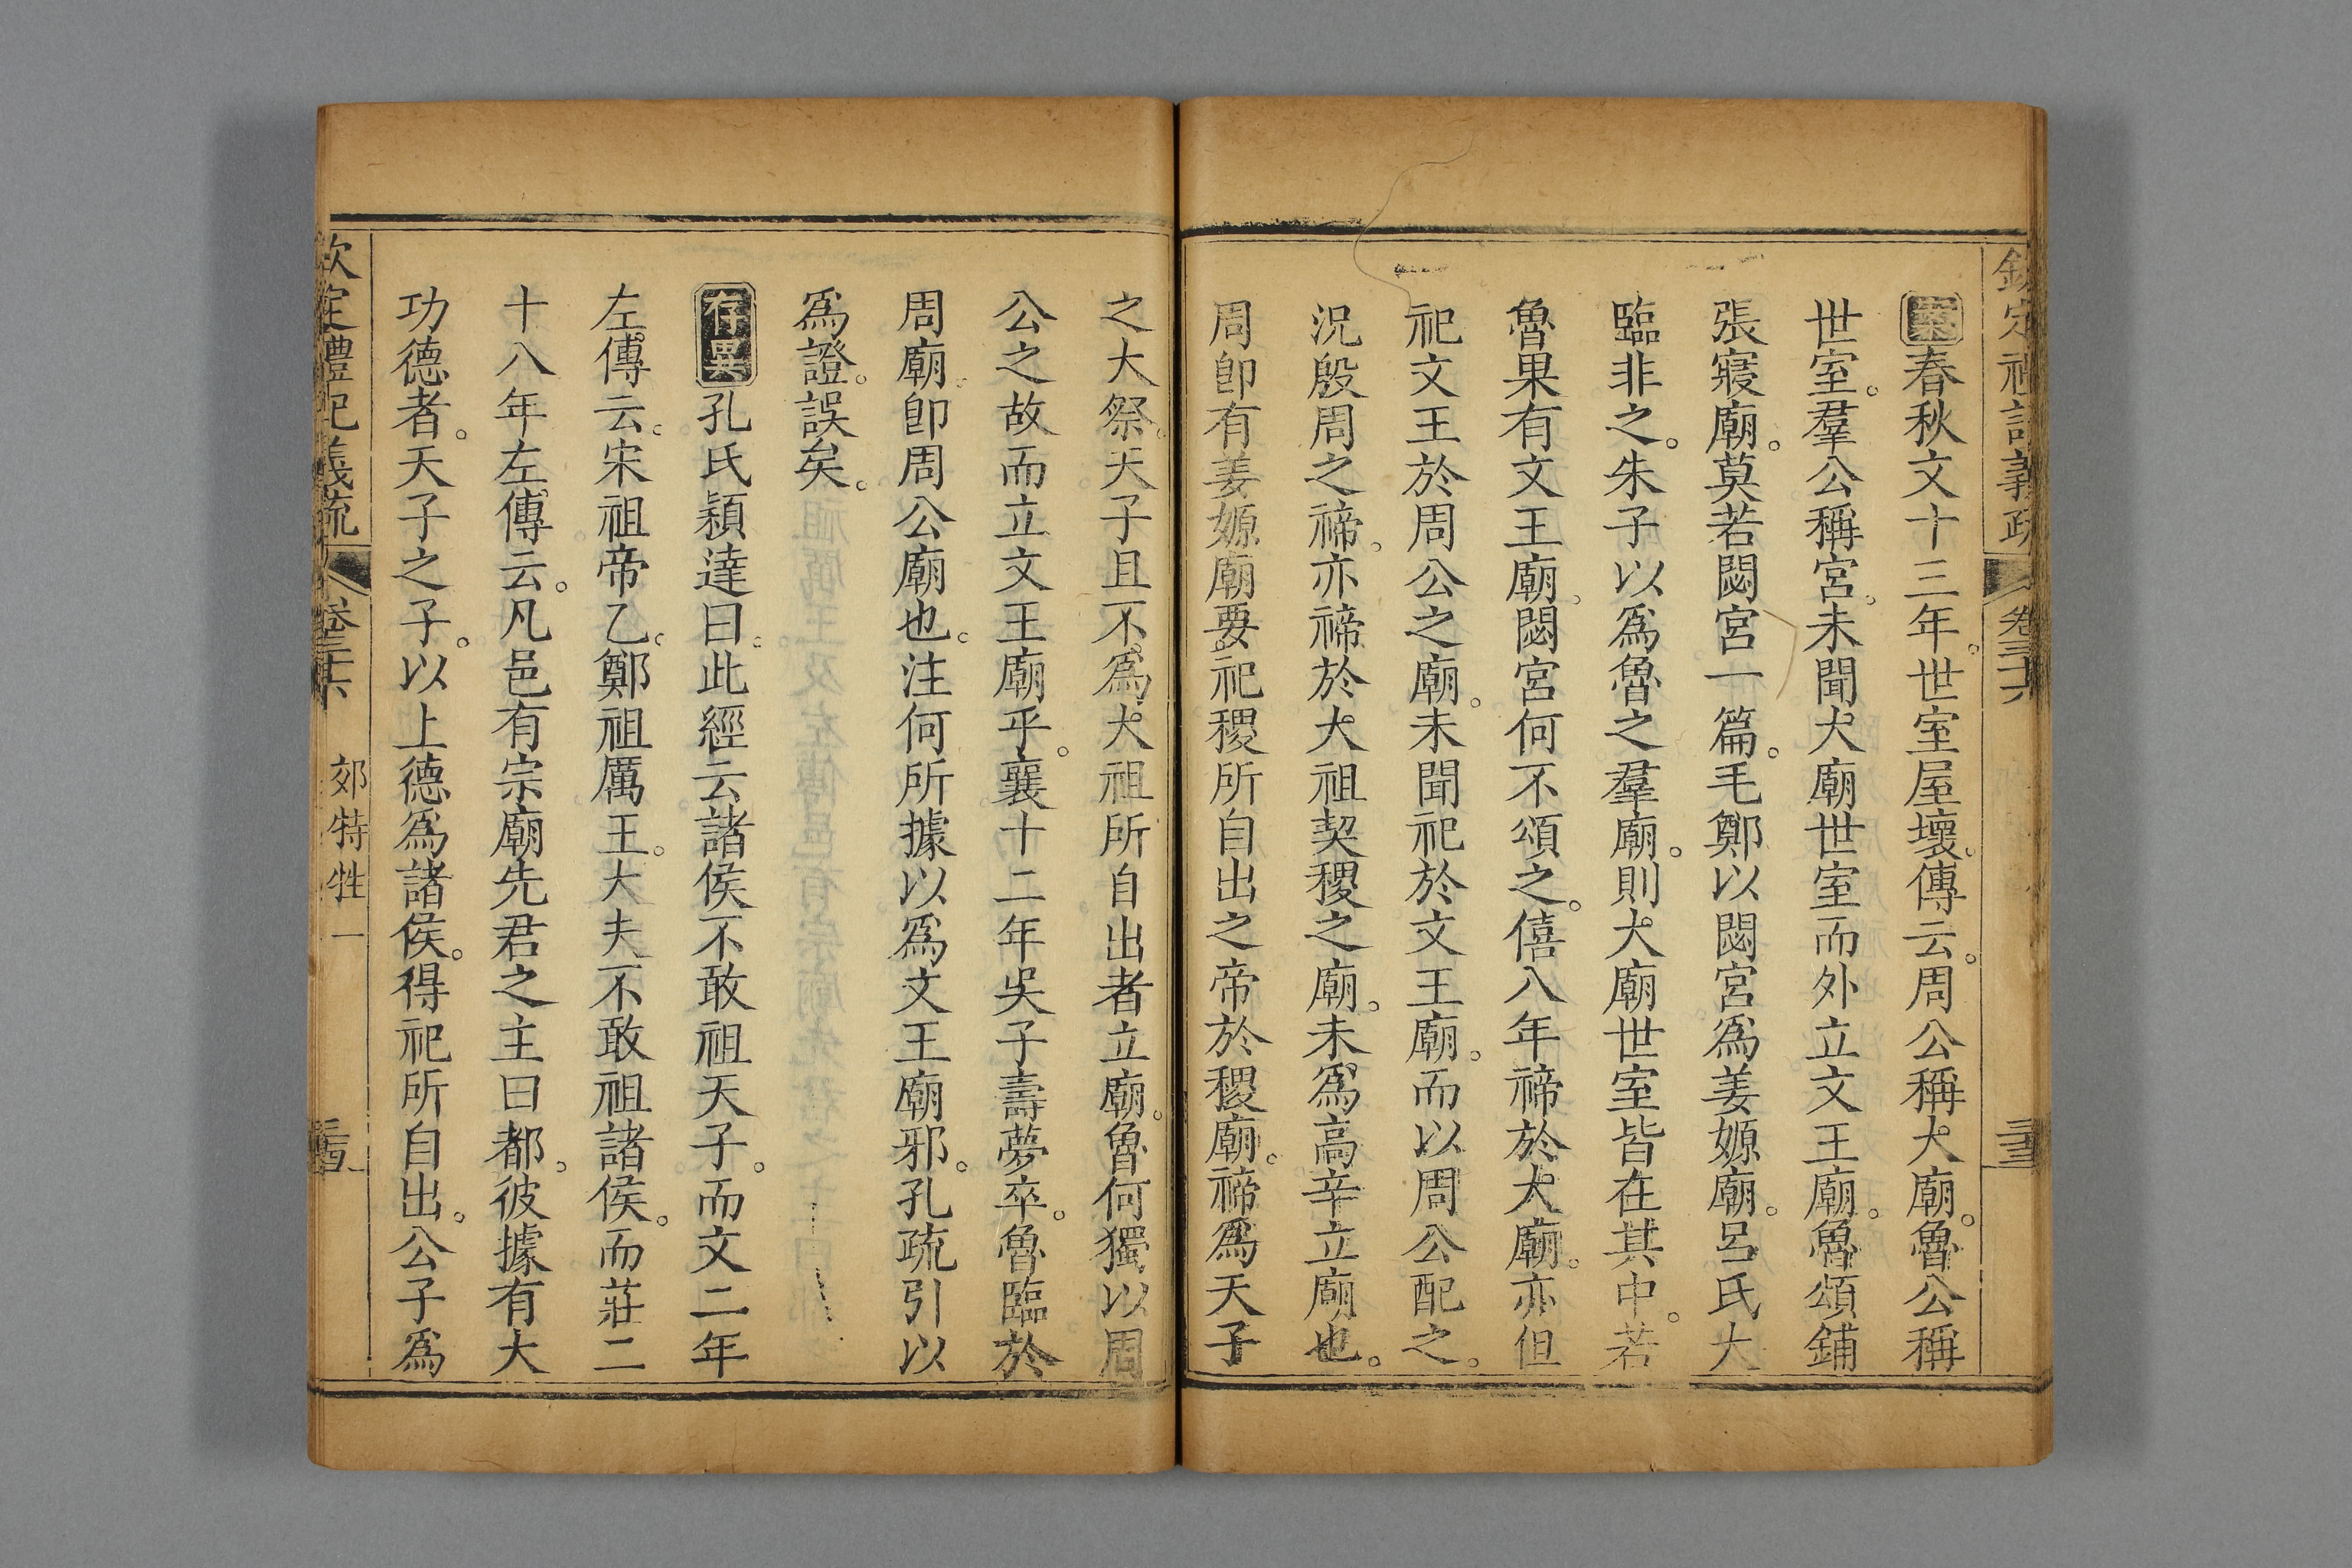 欽定禮記義疏 卷三十六 三三
案春秋文十三年。世室屋壞。傳云。周公稱大廟。魯公稱
世室。羣公稱宮。未聞大廟世室而外立文王廟。魯頌鋪
張寢廟。莫若閟宮一篇。毛鄭以閟宮爲姜嫄廟。呂氏大
臨非之。朱子以爲魯之羣廟。則大廟世室皆在其中。若
魯果有文王廟。閟宮何不頌之。僖八年禘於大廟。亦但
祀文王於周公之廟。未聞祀於文王廟。而以周公配之。
況殷周之禘。亦禘於大祖契稷之廟。未爲高辛立廟也。
周卽有姜嫄廟要祀稷所自出之帝於稷廟。禘爲天子
之大祭。天子且不爲大祖所自出者立廟。魯何獨以周
公之故而立文王廟乎。襄十二年吳子壽夢卒。魯臨於
周廟。卽周公廟也。注何所據以爲文王廟邪。孔疏引以
爲證。誤矣。
存異孔氏穎達曰。此經云諸侯不敢祖天子。而文二年
左傳云。宋祖帝乙。鄭祖厲王。大夫不敢祖諸侯。而莊二
十八年左傳云。凡邑有宗廟先君之主曰都。彼據有大
功德者。天子之子。以上德爲諸侯。得祀所自出。公子爲
欽定禮記義疏 卷三十六 郊特牲一